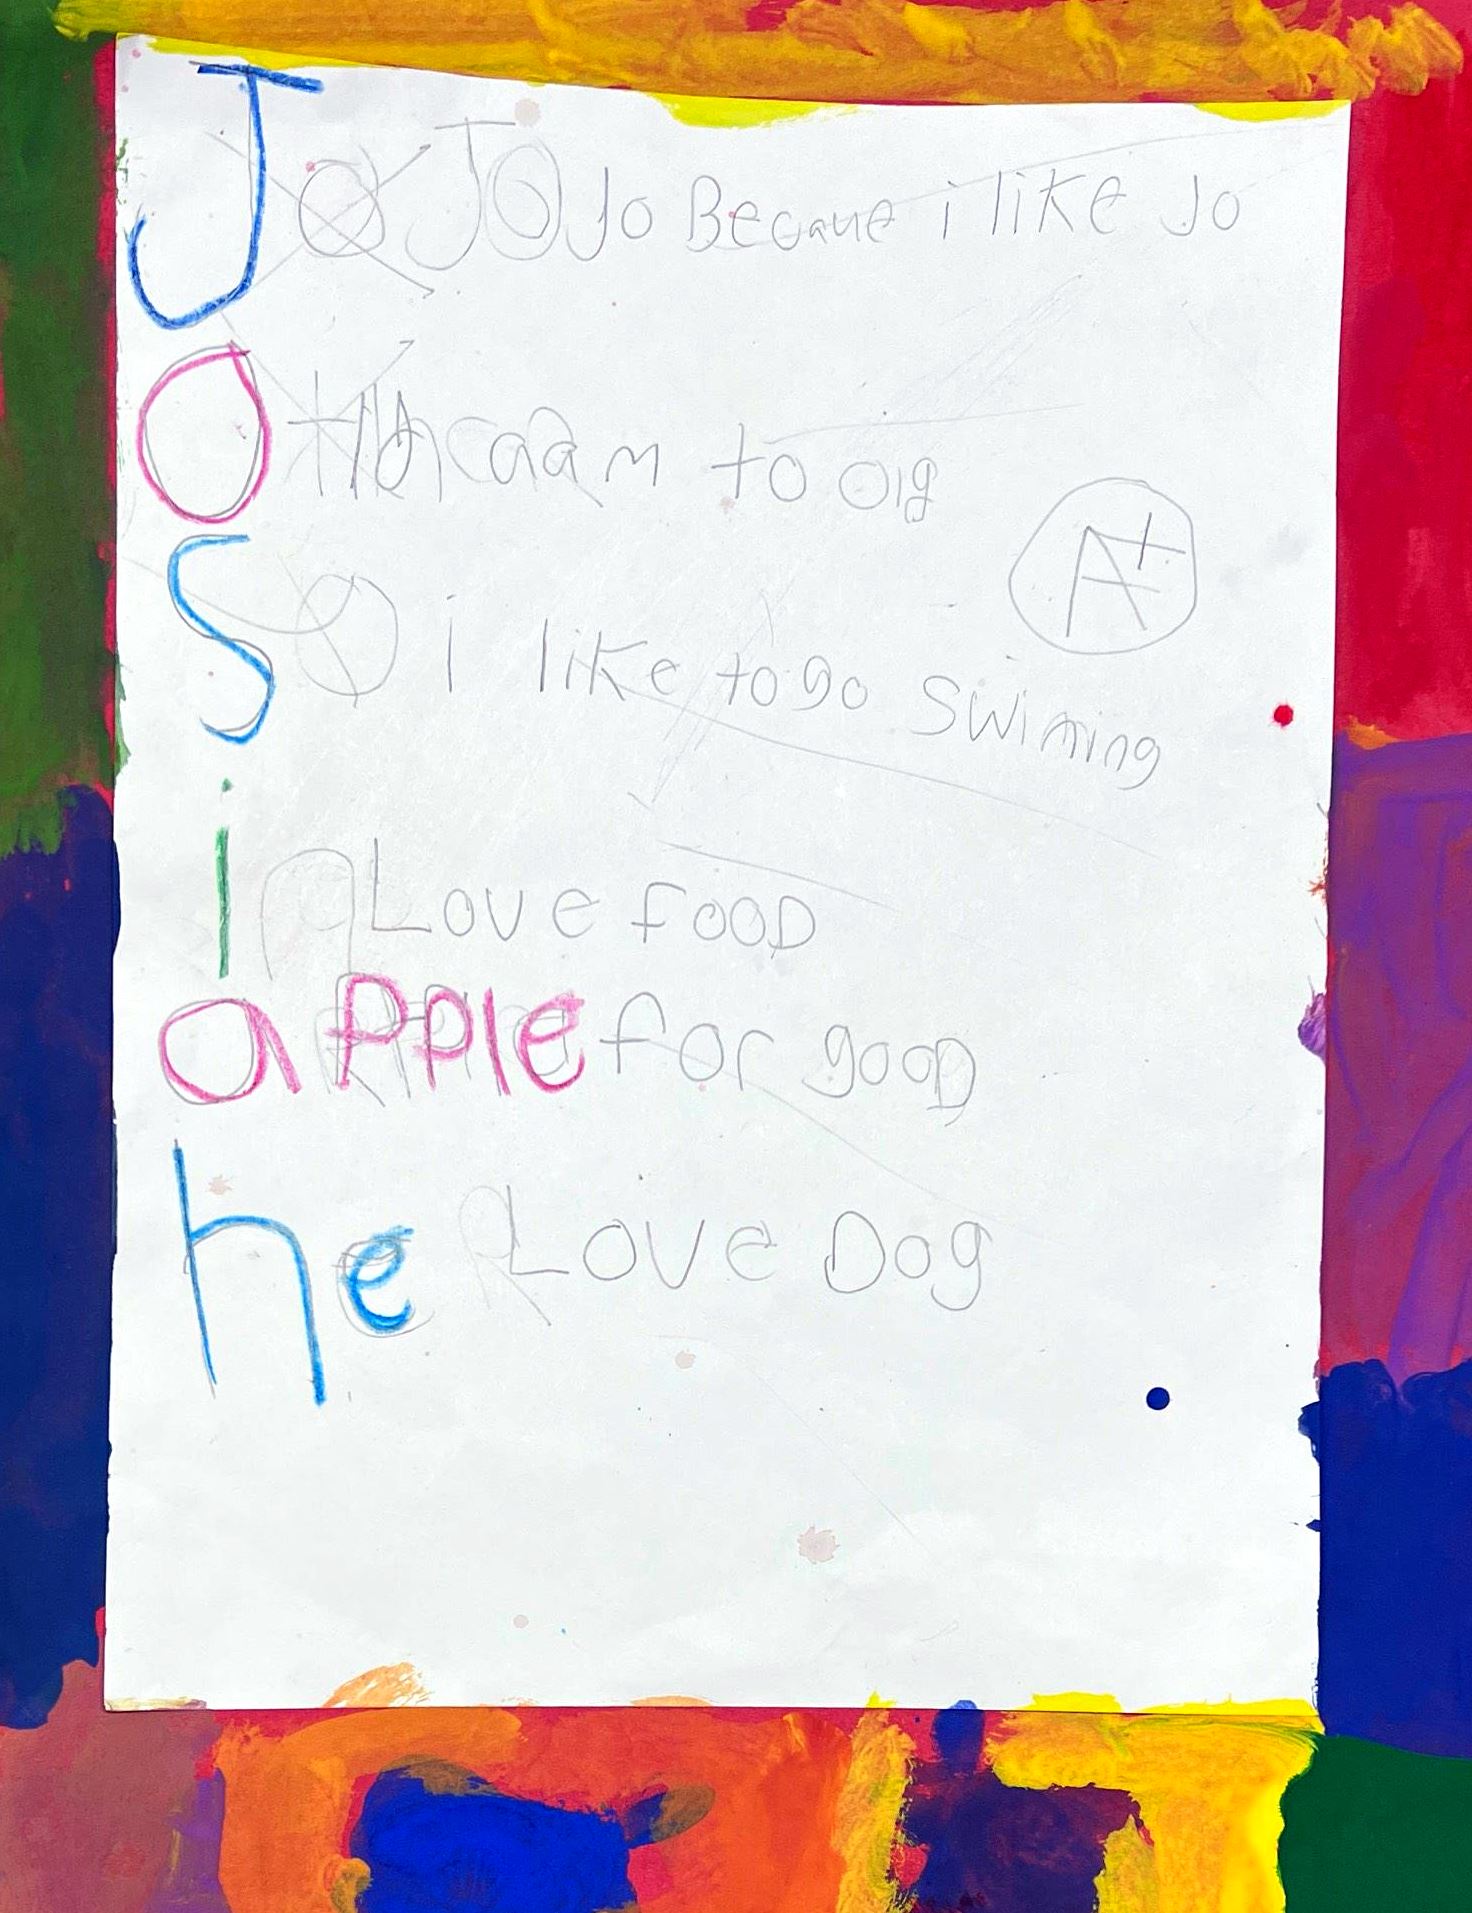 J JO Jo Becaue i like Jo
O to
A+
S i like to go swiming
i Love food
apple for good
he Love Dog